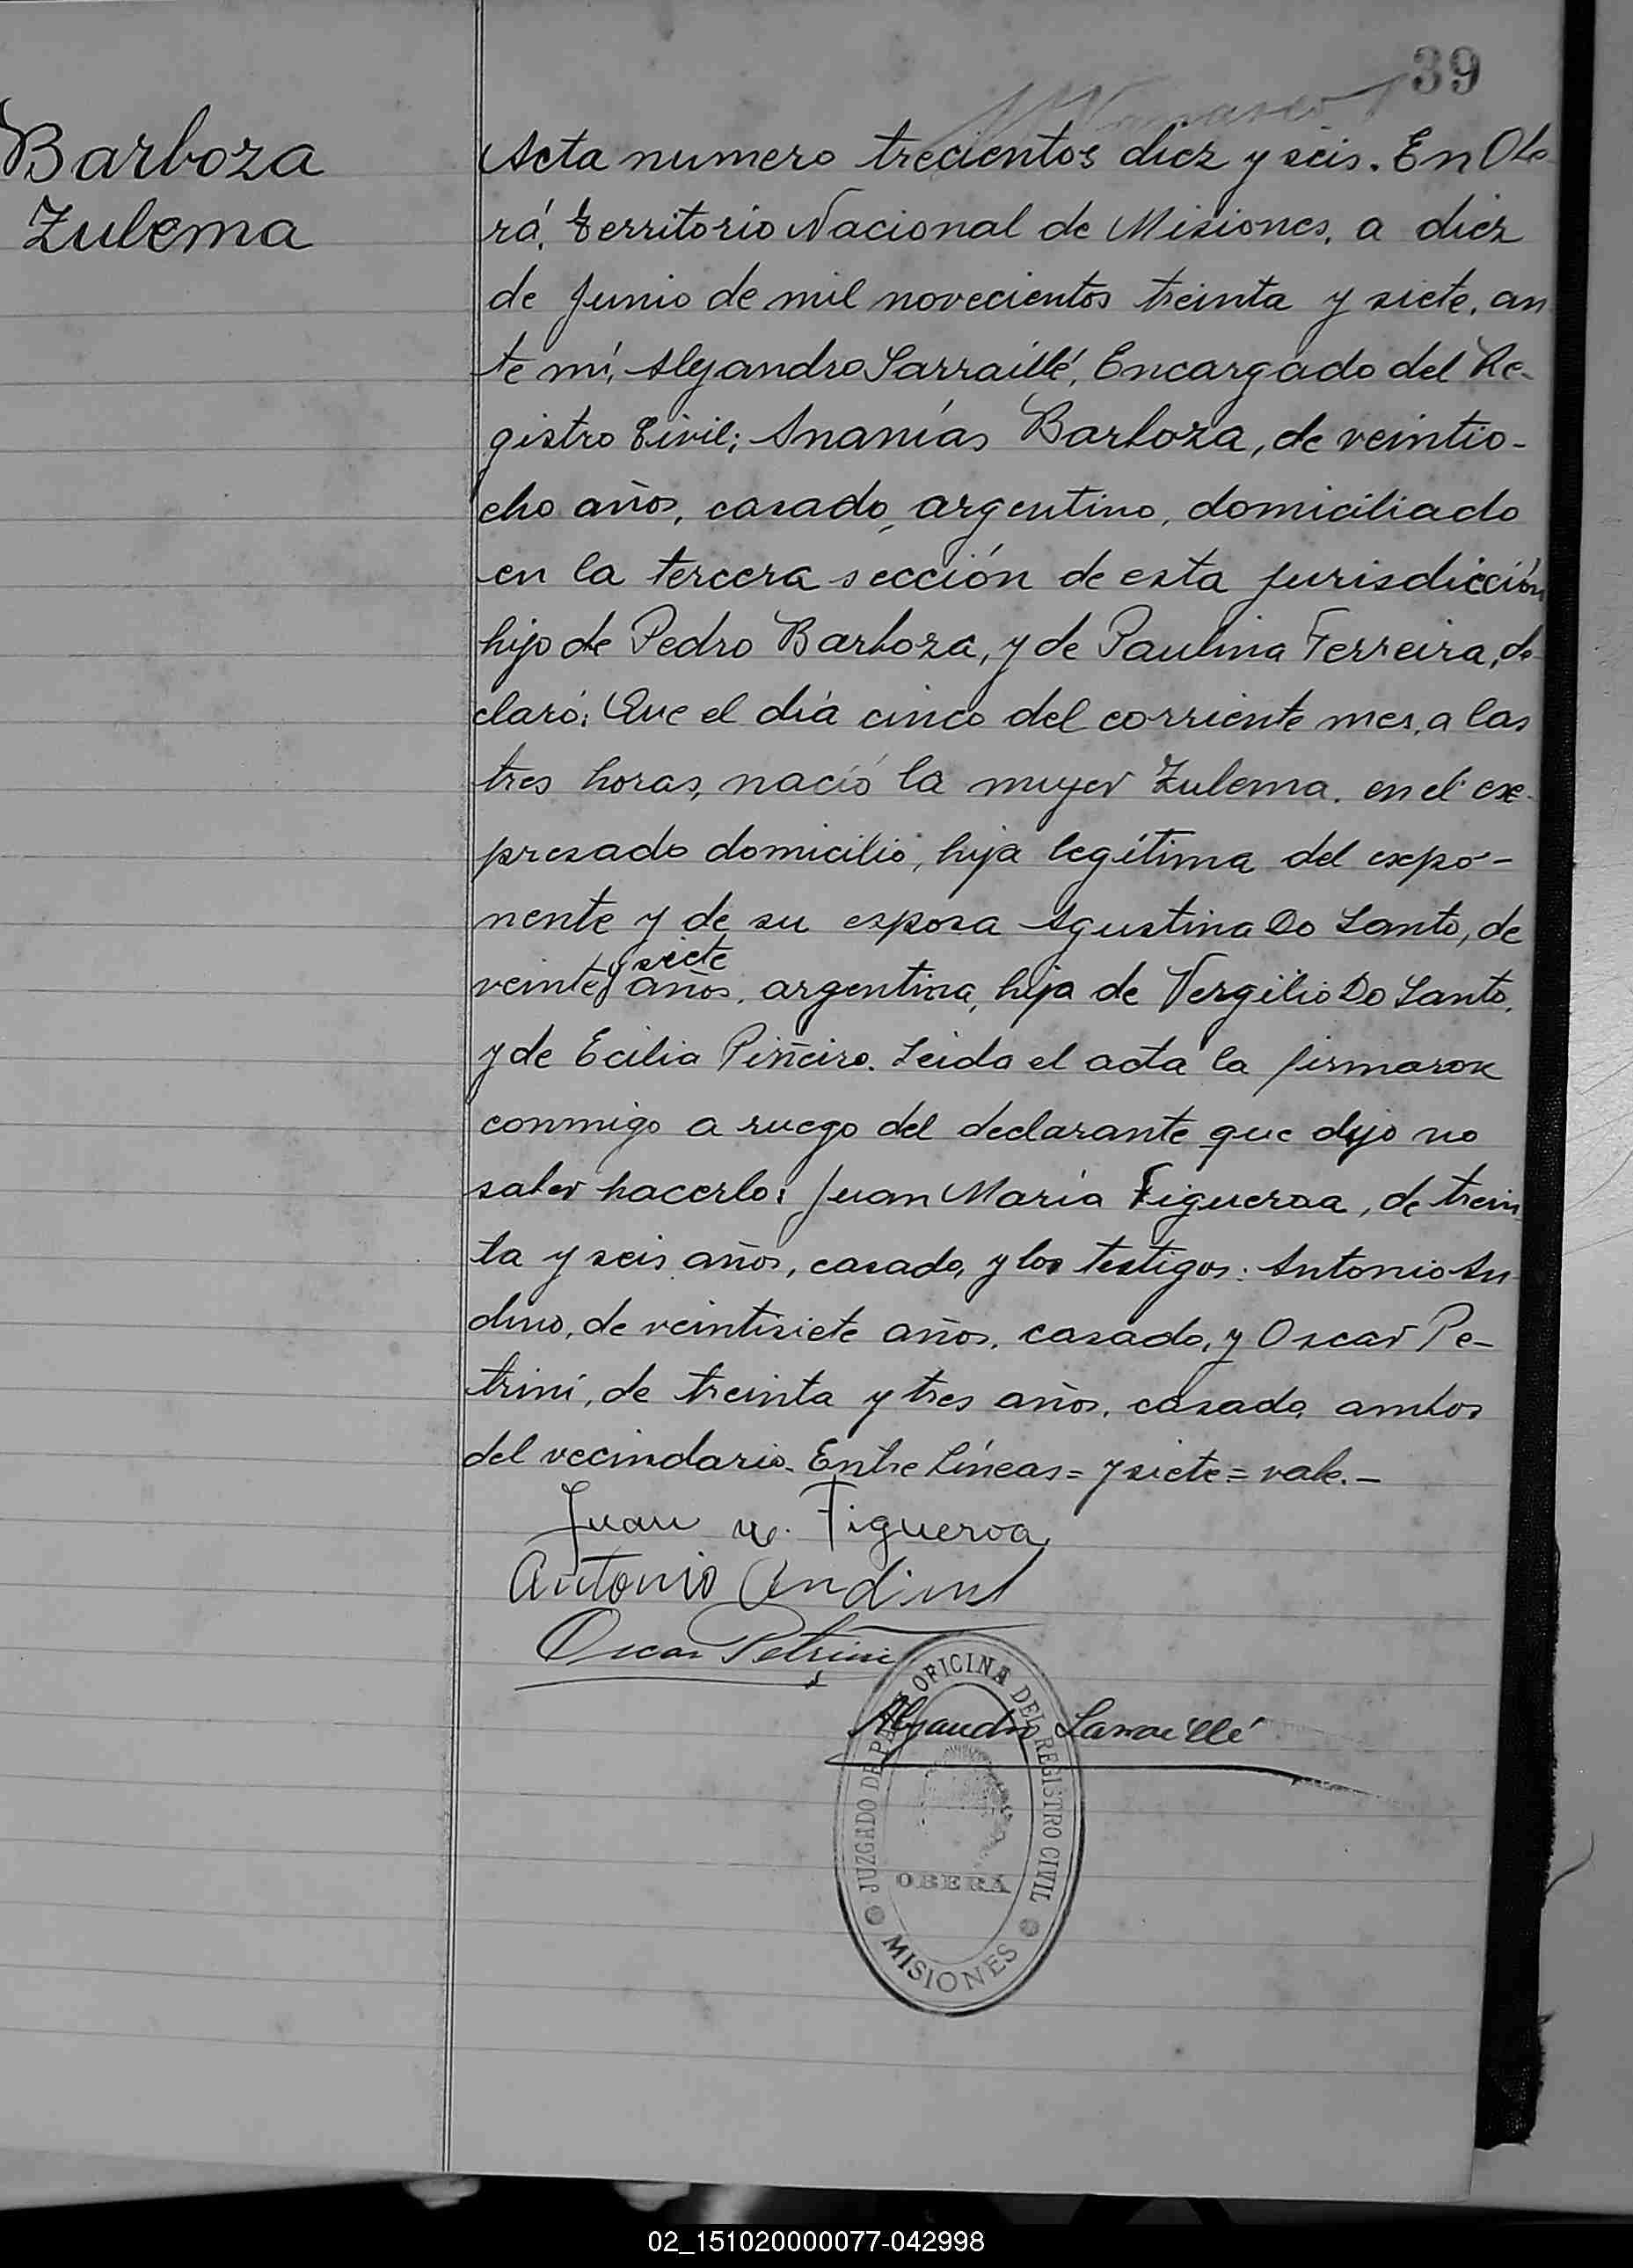 39
Barboza
Zulema
Acta numero trecientos diez y seis. En Obe
rá, territorio Nacional de Misiones, a diez
de Junio de mil novecientos treinta y siete, an
te mí, Alejandro Sarraillé, Encargado del Re-
gistro Civil; Ananías Barboza, de veintio-
cho años, casado, argentino, domiciliado
en la tercera sección de esta jurisdicción
hijo de Pedro Barboza, y de Paulina Ferreira, de-
claró: Que el día cinco del corriente mes, a las
tres horas, nació la mujer Zulema, en el ex-
presado domicilio, hija legítima del expo-
nente y de su esposa Agustina Do Santo, de
y siete
veinte años, argentina, hija de Vergilio Do Santo,
y de Ecilia Piñeiro. Leida el acta la firmaron
conmigo a ruego del declarante que dijo no
saber hacerlo: Juan María Figueroa, de trein
ta y seis años, casado, y los testigos: Antonio An
dino, de veintisiete años, casado, y Oscar Pe-
trini, de treinta y tres años, casado, ambos
del vecindario. Entre líneas = y siete = vale.-
Juan M. Figueroa
Antonio Andino
Oscar Petrini
Alejandro Sarraillé
JUZGADO DE PAZ OFICINA DEL REGISTRO CIVIL
OBERÁ
MISIONES
02_151020000077-042998